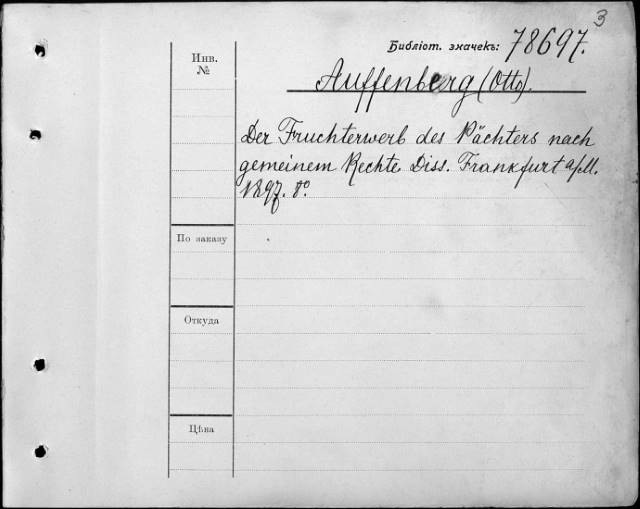 3
Библіот. значекъ: 78697.
Инв.
№
Auffenberg (Otto).
Der Fruchterwerb des Pächters nach
gemeinem Rechte. Diss. Frankfurt a/M.
1897. 8°.
По заказу
Откуда
Цѣна